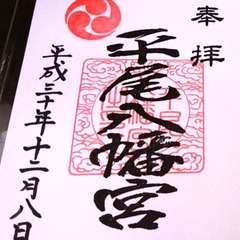 奉拝
平尾八幡宮
平成三十年十二月八日